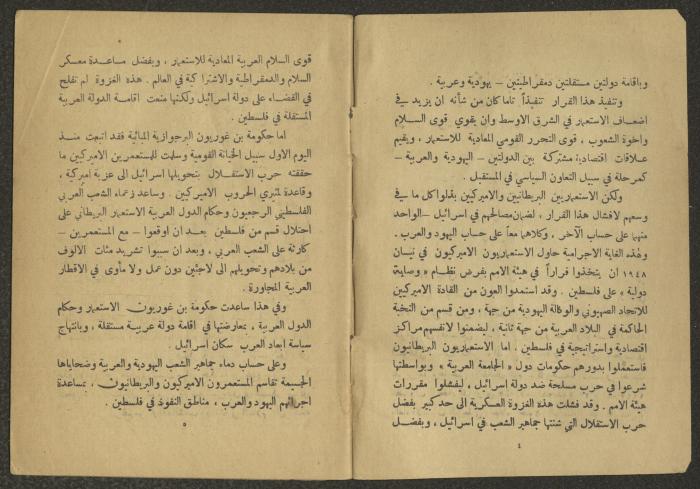 وباقامة دولتين مستقلتين دمقراطيتين – يهودية وعربية .
وتنفيذ هذا القرار تنفيذاً تاما كان من شأنه ان يزيد في
اضعاف الاستعمار في الشرق الاوسط وان يقوي قوى السلام
واخوة الشعوب ، قوى التحرر القومي المعادية للاستعمار ، ويقيم
علاقات اقتصادية مشتركة بين الدولتين – اليهودية والعربية –
كمرحلة في سبيل التعاون السياسي في المستقبل .
ولكن الاستعماريين البريطانيين والاميركيين بذلوا كل ما في
وسعهم لافشال هذا القرار ، لضمان مصالحهم في اسرائيل – الواحد
منهما على حساب الآخر ، وكلاهما معاً على حساب اليهود والعرب .
ولهذه الغاية الاجرامية حاول الاستعماريون الاميركيون في نيسان
١٩٤٨ ان يتخذوا قراراً في هيئة الامم بفرض نظام « وصاية
دولية » على فلسطين . وقد استمدوا العون من القادة الاميركيين
للاتحاد الصهيوني والوكالة اليهودية من جهة ، ومن قسم من النخبة
الحاكمة في البلاد العربية من جهة ثانية ، ليضمنوا لانفسهم مراكز
اقتصادية واستراتيجية في فلسطين . اما الاستعماريون البريطانيون
فاستعملوا بدورهم حكومات دول « الجامعة العربية » وبواسطتها
شرعوا في حرب مسلحة ضد دولة اسرائيل ، ليفشلوا مقررات
هيئة الامم . وقد فشلت هذه الغزوة العسكرية الى حد كبير بفضل
حرب الاستقلال التي شنتها جماهير الشعب في اسرائيل ، وبفضل
٤
قوى السلام العربية المعادية للاستعمار ، وبفضل مساعدة معسكر
السلام والدمقراطية والاشتراكية في العالم . هذه الغزوة لم تفلح
في القضاء على دولة اسرائيل ولكنها منعت اقامة الدولة العربية
المستقلة في فلسطين .
اما حكومة بن غوريون البرجوازية المبائية فقد اتبعت منذ
اليوم الاول سبيل الخيانة القومية وسلمت للمستعمرين الاميركيين ما
حققته حرب الاستقلال بتحويلها اسرائيل الى عزبة اميركة ،
وقاعدة لمثيري الحروب الاميركيين . وساعد زعماء الشعب العربي
الفلسطيني الرجعيون وحكام الدول العربية الاستعمار البريطاني على
احتلال قسم من فلسطين بعد ان اوقعوا – مع المستعمرين –
كارثة على الشعب العربي ، وبعد ان سببوا تشريد مئات الالوف
من بلادهم وتحويلهم الى لاجئين دون عمل ولا مأوى في الاقطار
العربية المجاورة .
وفي هذا ساعدت حكومة بن غوريون الاستعمار وحكام
الدول العربية ، بمعارضتها في اقامة دولة عربية مستقلة ، وبانتهاج
سياسة ابعاد العرب سكان اسرائيل .
وعلى حساب دماء جماهير الشعب اليهودية والعربية وضحاياها
الجسيمة تقاسم المستعمرون الاميركيون والبريطانيون ، بمساعدة
اجرائهم اليهود والعرب ، مناطق النفوذ في فلسطين .
٥